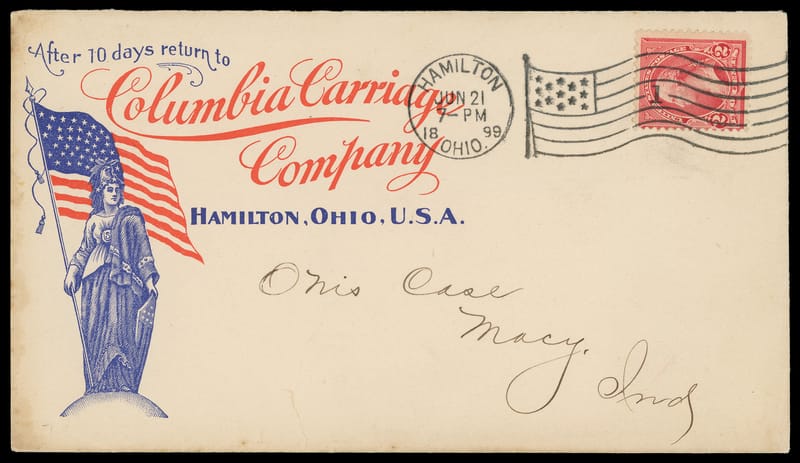 After 10 days return to
Columbia Carriage
Company
HAMILTON, OHIO, U.S.A.
HAMILTON
JUN 21
7-PM
18 99
OHIO.
2 2
Otis Case
Macy.
Ind